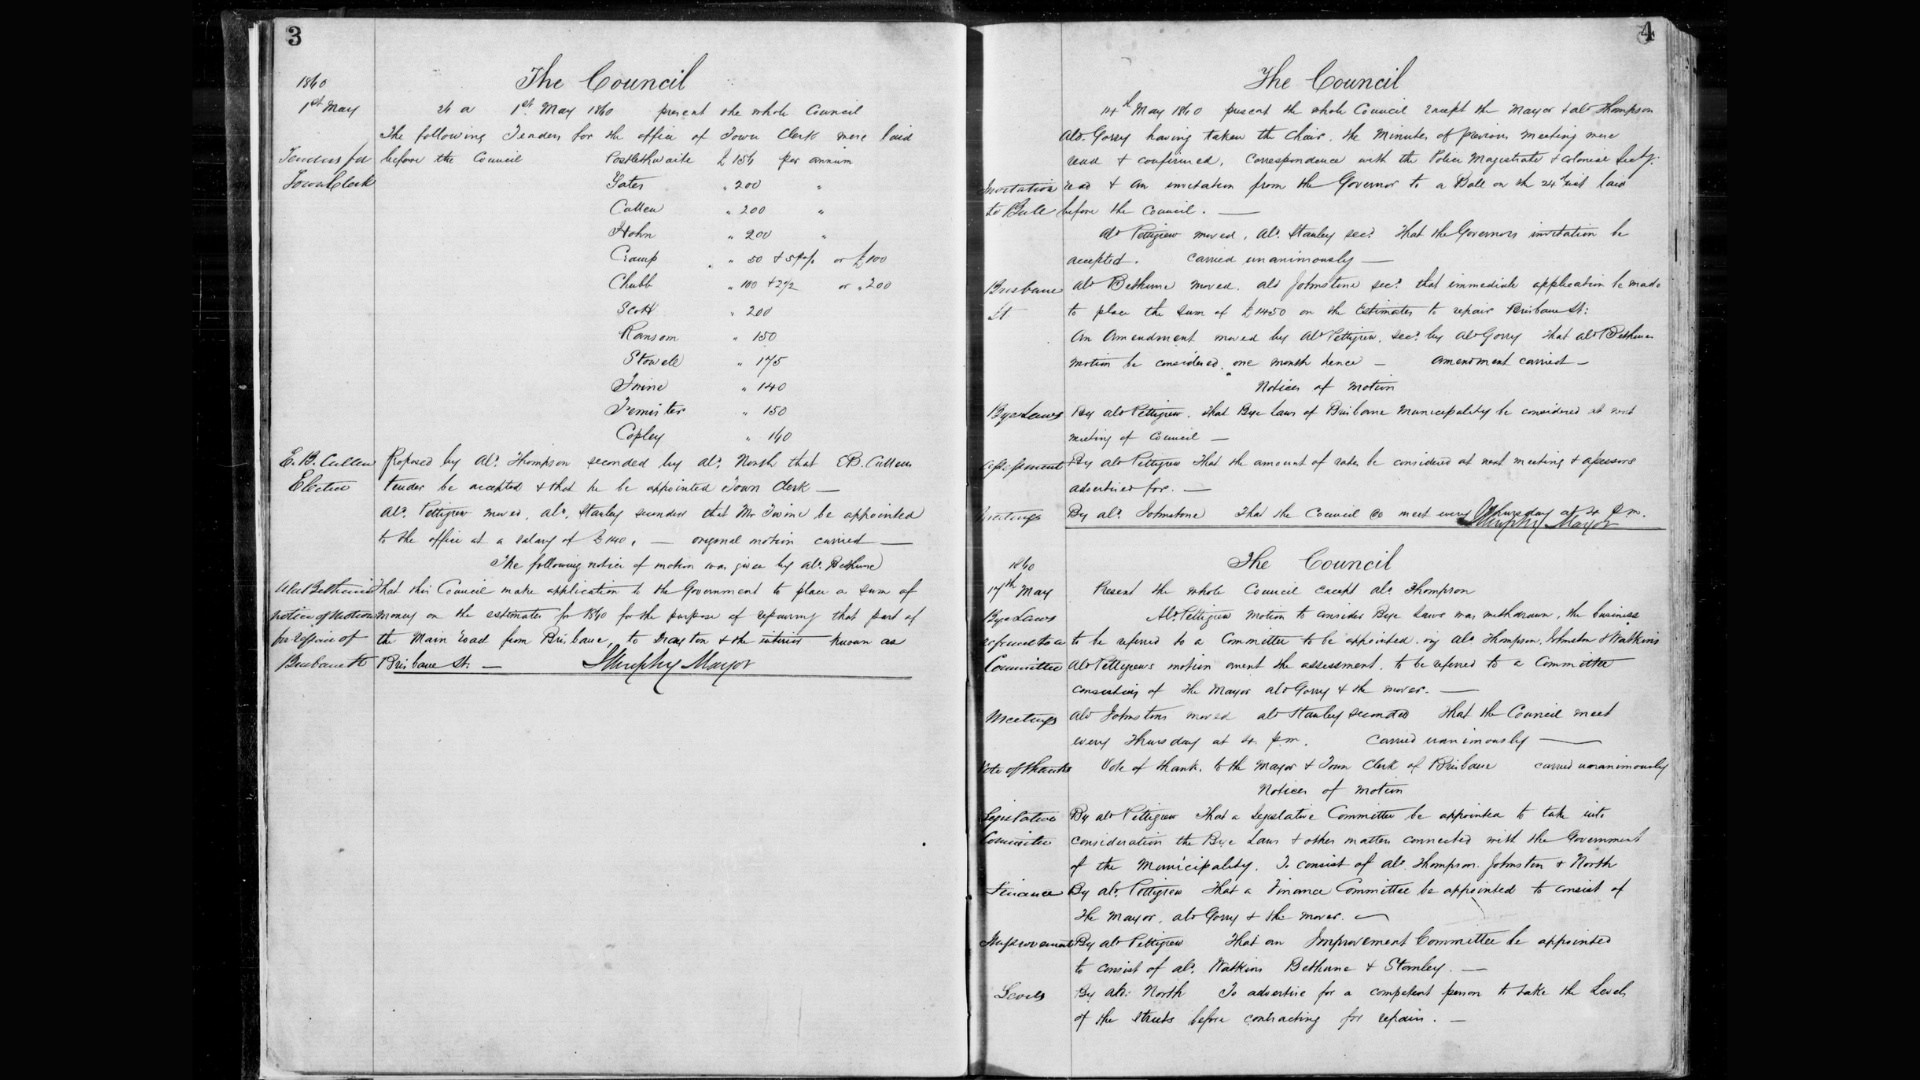 3
The Council
1860
1st May
1st May 1860 present the whole Council
The following Tenders for the office of Town Clerk were laid
Tenders for before the Council Postlethwaite £156 per annum
Town Clerk Yates " 200 "
Cullen " 200 "
Hohn " 200 "
Cramp " 50 + 5 p% or £100
Chubb " 100 + 2½ or " 200
Scott " 200
Ransom " 150
Stowell " 175
Irvine " 140
Femister " 150
Copley " 140
E. B. Cullen Proposed by Ald. Thompson seconded by ald. North that E B. Cullens
Election tender be accepted + that he be appointed Town Clerk —
Ald. Pettigrew moved, ald. Stanley seconded that Mr Irvine be appointed
to the office at a salary of £140. — original motion carried —
The following notice of motion was given by ald. Bethune
Ald Bethunes That this Council make application to the Government to place a sum of
notice of Motion money on the estimates for 1860 for the purpose of repairing that part of
for repairs of the Main road from Brisbane, to Drayton + the interior known as
Brisbane St Brisbane St. — J Murphy Mayor
4
The Council
14th May 1860 present the whole Council except the Mayor + ald Thompson
Ald. Gorry having taken the Chair, the Minutes of previous meeting were
read + confirmed, Correspondence with the Police Magistrate + Colonial Secty:
Invitation read + an invitation from the Governor to a Ball on the 24th inst laid
to Ball before the Council. —
Ald Pettigrew moved, Ald. Stanley secd. That the Governors invitation be
accepted. Carried unanimously —
Brisbane Ald Bethune moved, ald Johnstone secd. that immediate application be made
St to place the sum of £1450 on the Estimates to repair Brisbane St:
An Amendment moved by Ald Pettigrew, secd. by Ald Gorry That ald Bethunes
motion be considered, one month hence — Amendment carried —
Notices of Motion
Bye Laws By ald Pettigrew. That Bye laws of Brisbane Municipality be considered at next
meeting of Council —
Assessment By ald Pettigrew That the amount of rates be considered at next meeting + assessors
advertised for. —
Meetings By ald. Johnstone That the Council do meet every Thursday at 4 p.m.
J Murphy Mayor
The Council
1860
17th May Present the whole Council except ald. Thompson
Bye Laws Ald. Pettigrew motion to consider Bye laws was withdrawn, the business
referred to a to be referred to a Committee to be appointed. viz ald. Thompson, Johnston + Watkins
Committee Ald Pettigrews motion anent the assessment, to be referred to a Committee
consisting of the Mayor ald Gorry + the mover. —
Meetings Ald Johnstons moved ald Stanley seconded That the Council meet
every Thursday at 4 p.m. Carried unanimously —
Vote of thanks Vote of thanks to the Mayor + Town Clerk of Brisbane carried unanimously
Notices of Motion
Legislative By ald Pettigrew That a Legislative Committee be appointed to take into
Committee consideration the Bye Laws + other matters connected with the Government
of the Municipality. To consist of ald. Thompson, Johnston + North
Finance By ald. Pettigrew That a Finance Committee be appointed to consist of
the Mayor, ald Gorry + the mover. —
Improvement By ald Pettigrew That an Improvement Committee be appointed
to consist of ald. Watkins Bethune + Stanley. —
Levels By ald: North To advertise for a competent person to take the Levels
of the streets before contracting for repairs. —